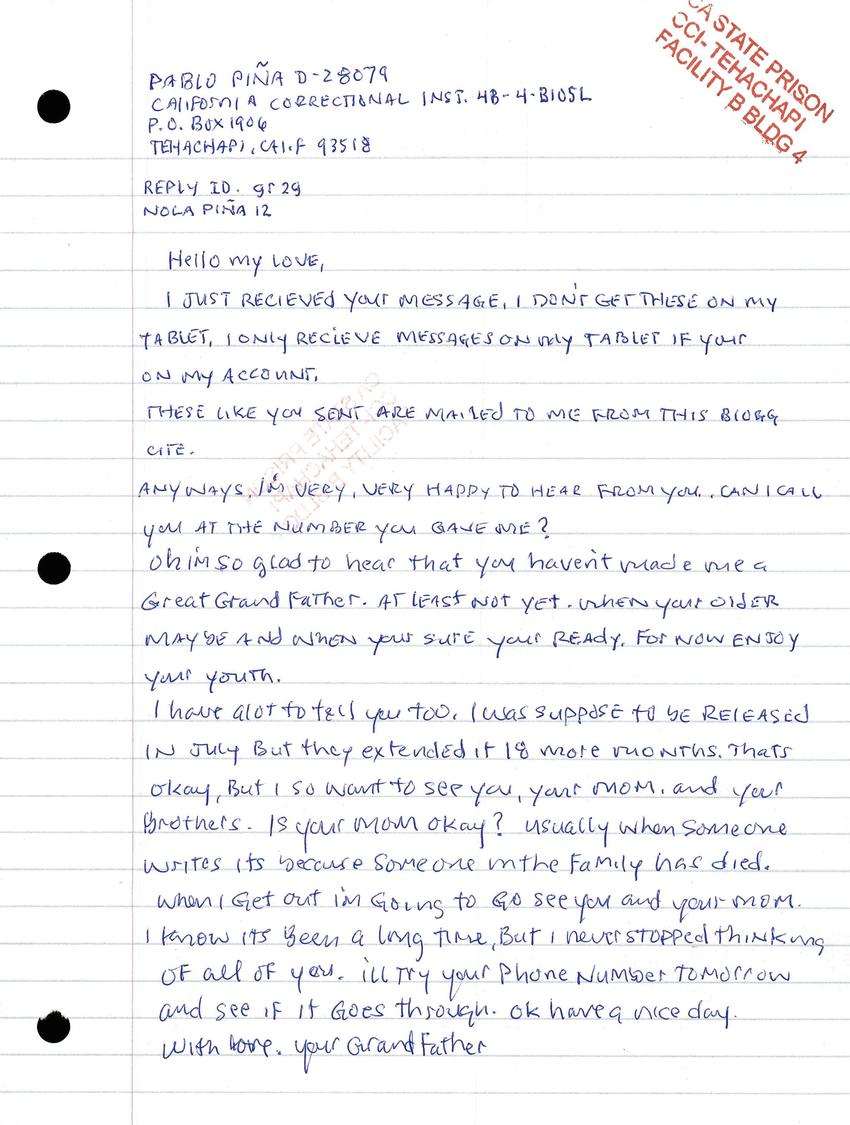 CA STATE PRISON
CCI-TEHACHAPI
FACILITY B BLDG 4
PABLO PIÑA D-28079
CALIFORNIA CORRECTIONAL INST. 4B-4-B105L
P.O. BOX 1906
TEHACHAPI, CALIF 93518
REPLY ID. gr 2g
NOLA PIÑA 12
Hello my LOVE,
I JUST RECIEVED YOUR MESSAGE, I DON'T GET THESE ON MY
TABLET, I ONLY RECIEVE MESSAGES ON MY TABLET IF YOUR
ON MY ACCOUNT.
THESE LIKE YOU SENT ARE MAILED TO ME FROM THIS BLOGG
CITE.
ANYWAYS, I'M VERY, VERY HAPPY TO HEAR FROM YOU. CAN I CALL
YOU AT THE NUMBER YOU GAVE ME?
Oh i'm so glad to hear that you haven't made me a
Great Grand Father. AT LEAST NOT YET. When your OLDER
MAYBE AND WHEN your SURE your READY. FOR NOW ENJOY
your youth.
I have alot to tell you too. I was suppose to be RELEASED
IN JULY But they extended it 18 more months. Thats
okay, But I so want to see you, your mom. and your
Brothers. Is your mom okay? usually when someone
writes its because someone in the Family has died.
When I Get out i'm Going to Go see you and your mom.
I know its Been a long time, But I never STOPPED thinking
OF all of you. i'll Try your Phone Number TOMORROW
and see if it Goes through. ok have a nice day.
With love. your Grand Father